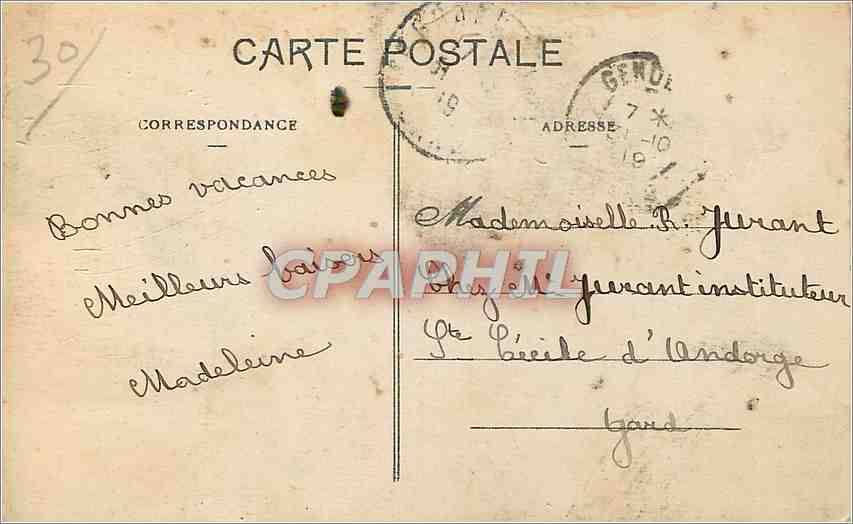 30/
CARTE POSTALE
CORRESPONDANCE
ADRESSE
7 *
-10
19
19
Bonnes vacances
Meilleurs baisers
Madeleine
CPAPHIL
Mademoiselle R. Jurant
Chez Mr Jurant instituteur
Ste Cécile d'Andorge
Gard